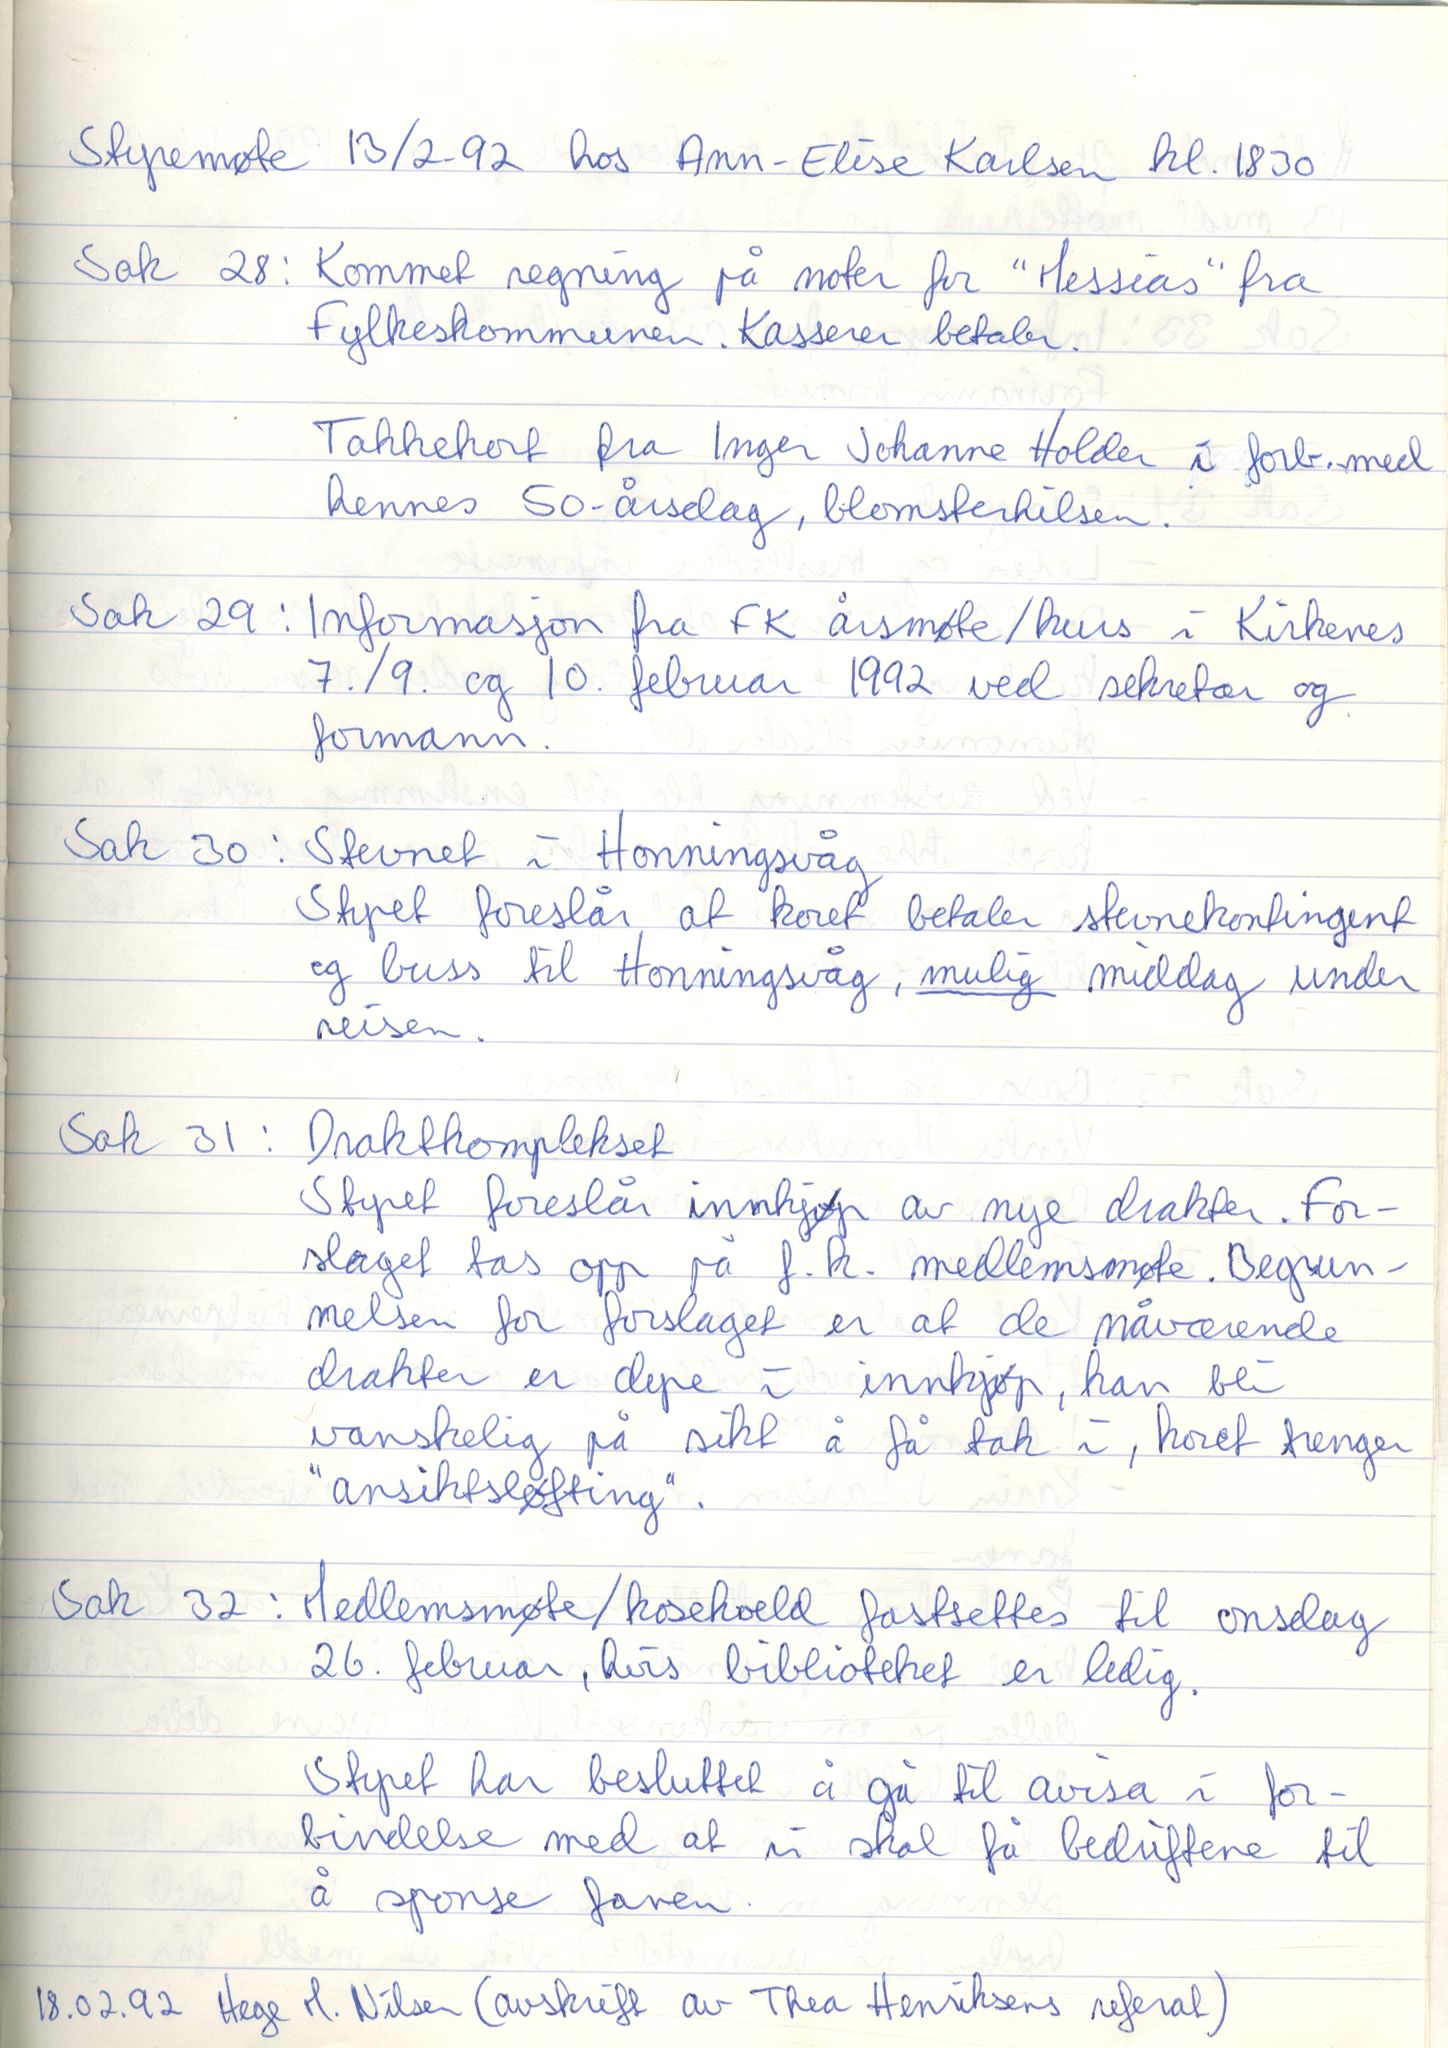 Styremøte 13/2-92 hos Ann-Elise Karlsen kl. 1830
Sak 28: Kommet regning på noter for "Messias" fra
Fylkeskommunen. Kasserer betaler.
Takkekort fra Inger Johanne Holder i forb. med
hennes 50-årsdag, blomsterhilsen.
Sak 29: Informasjon fra FK årsmøte/kurs i Kirkenes
7./9. og 10. februar 1992 ved sekretær og
formann.
Sak 30: Stevnet i Honningsvåg
Styret foreslår at koret betaler stevnekontingent
og buss til Honningsvåg, mulig middag under
reisen.
Sak 31: Draktkomplekset
Styret foreslår innkjøp av nye drakter. For-
slaget tas opp på f.k. medlemsmøte. Begrun-
nelsen for forslaget er at de nåværende
drakter er dyre i innkjøp, kan bli
vanskelig på sikt å få tak i, koret trenger
"ansiktsløfting".
Sak 32: Medlemsmøte/kosekveld fastsettes til onsdag
26. februar, hvis biblioteket er ledig.
Styret har besluttet å gå til avisa i for-
bindelse med at vi skal få bedriftene til
å sponse fanen.
18.02.92 Hege M. Nilsen (avskrift av Thea Henriksens referat)